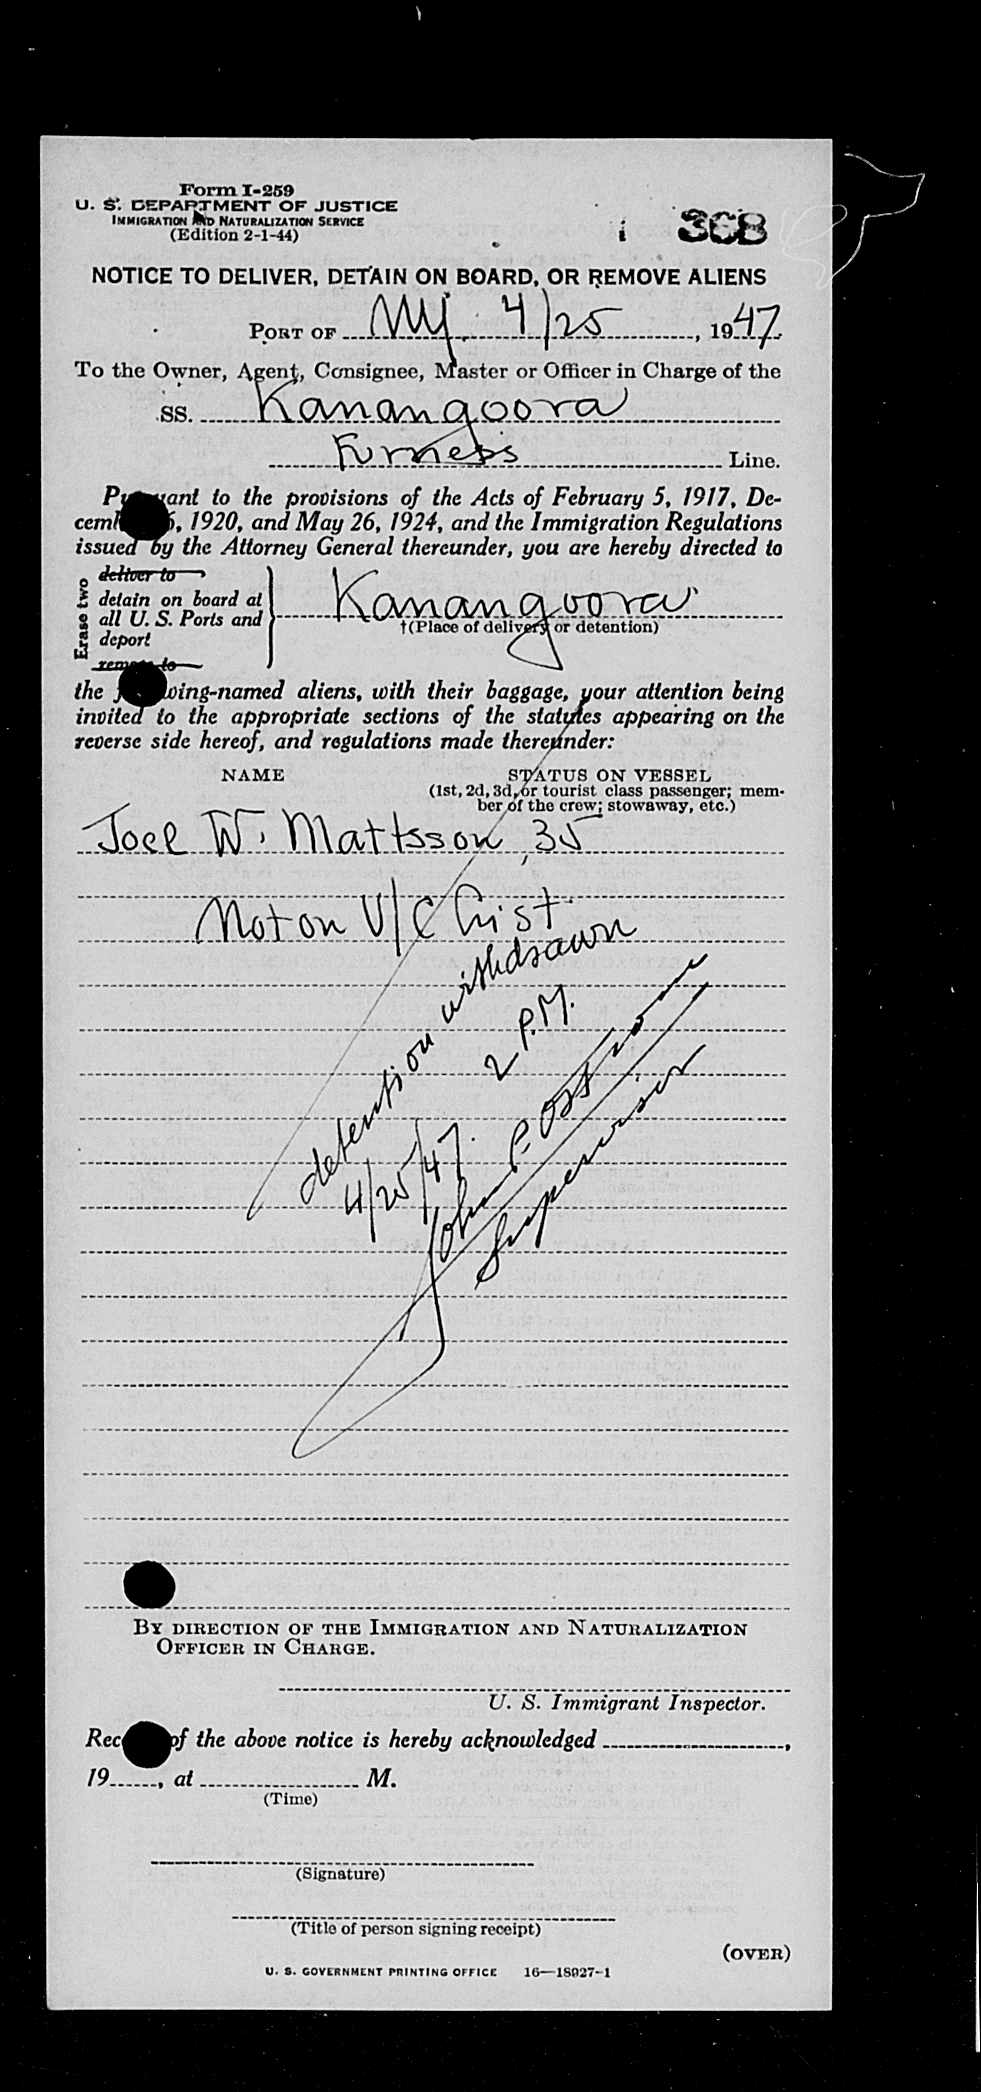 Form I-259
U. S. DEPARTMENT OF JUSTICE
IMMIGRATION AND NATURALIZATION SERVICE
(Edition 2-1-44)
368
NOTICE TO DELIVER, DETAIN ON BOARD, OR REMOVE ALIENS
PORT OF NY. 4/25, 1947
To the Owner, Agent, Consignee, Master or Officer in Charge of the
SS. Kanangoora
Furness Line.
Pursuant to the provisions of the Acts of February 5, 1917, De-
cember 26, 1920, and May 26, 1924, and the Immigration Regulations
issued by the Attorney General thereunder, you are hereby directed to
Erase two
deliver to
detain on board at
all U. S. Ports and
deport
remove to
Kanangoora
†(Place of delivery or detention)
the following-named aliens, with their baggage, your attention being
invited to the appropriate sections of the statutes appearing on the
reverse side hereof, and regulations made thereunder:
NAME STATUS ON VESSEL
(1st, 2d, 3d, or tourist class passenger; mem-
ber of the crew; stowaway, etc.)
Joel W. Mattsson, 35
Not on V/C list
detention withdrawn
4/25/47. 2 P.M.
John P.
Supervisor
BY DIRECTION OF THE IMMIGRATION AND NATURALIZATION
OFFICER IN CHARGE.
U. S. Immigrant Inspector.
Receipt of the above notice is hereby acknowledged ,
19 , at M.
(Time)
(Signature)
(Title of person signing receipt)
(OVER)
U. S. GOVERNMENT PRINTING OFFICE 16—18027-1